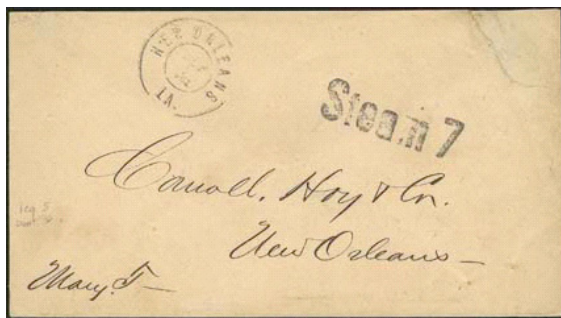 NEW ORLEANS
LA.
Steam 7
Carroll, Hoy & Co.
New Orleans –
Mary T –